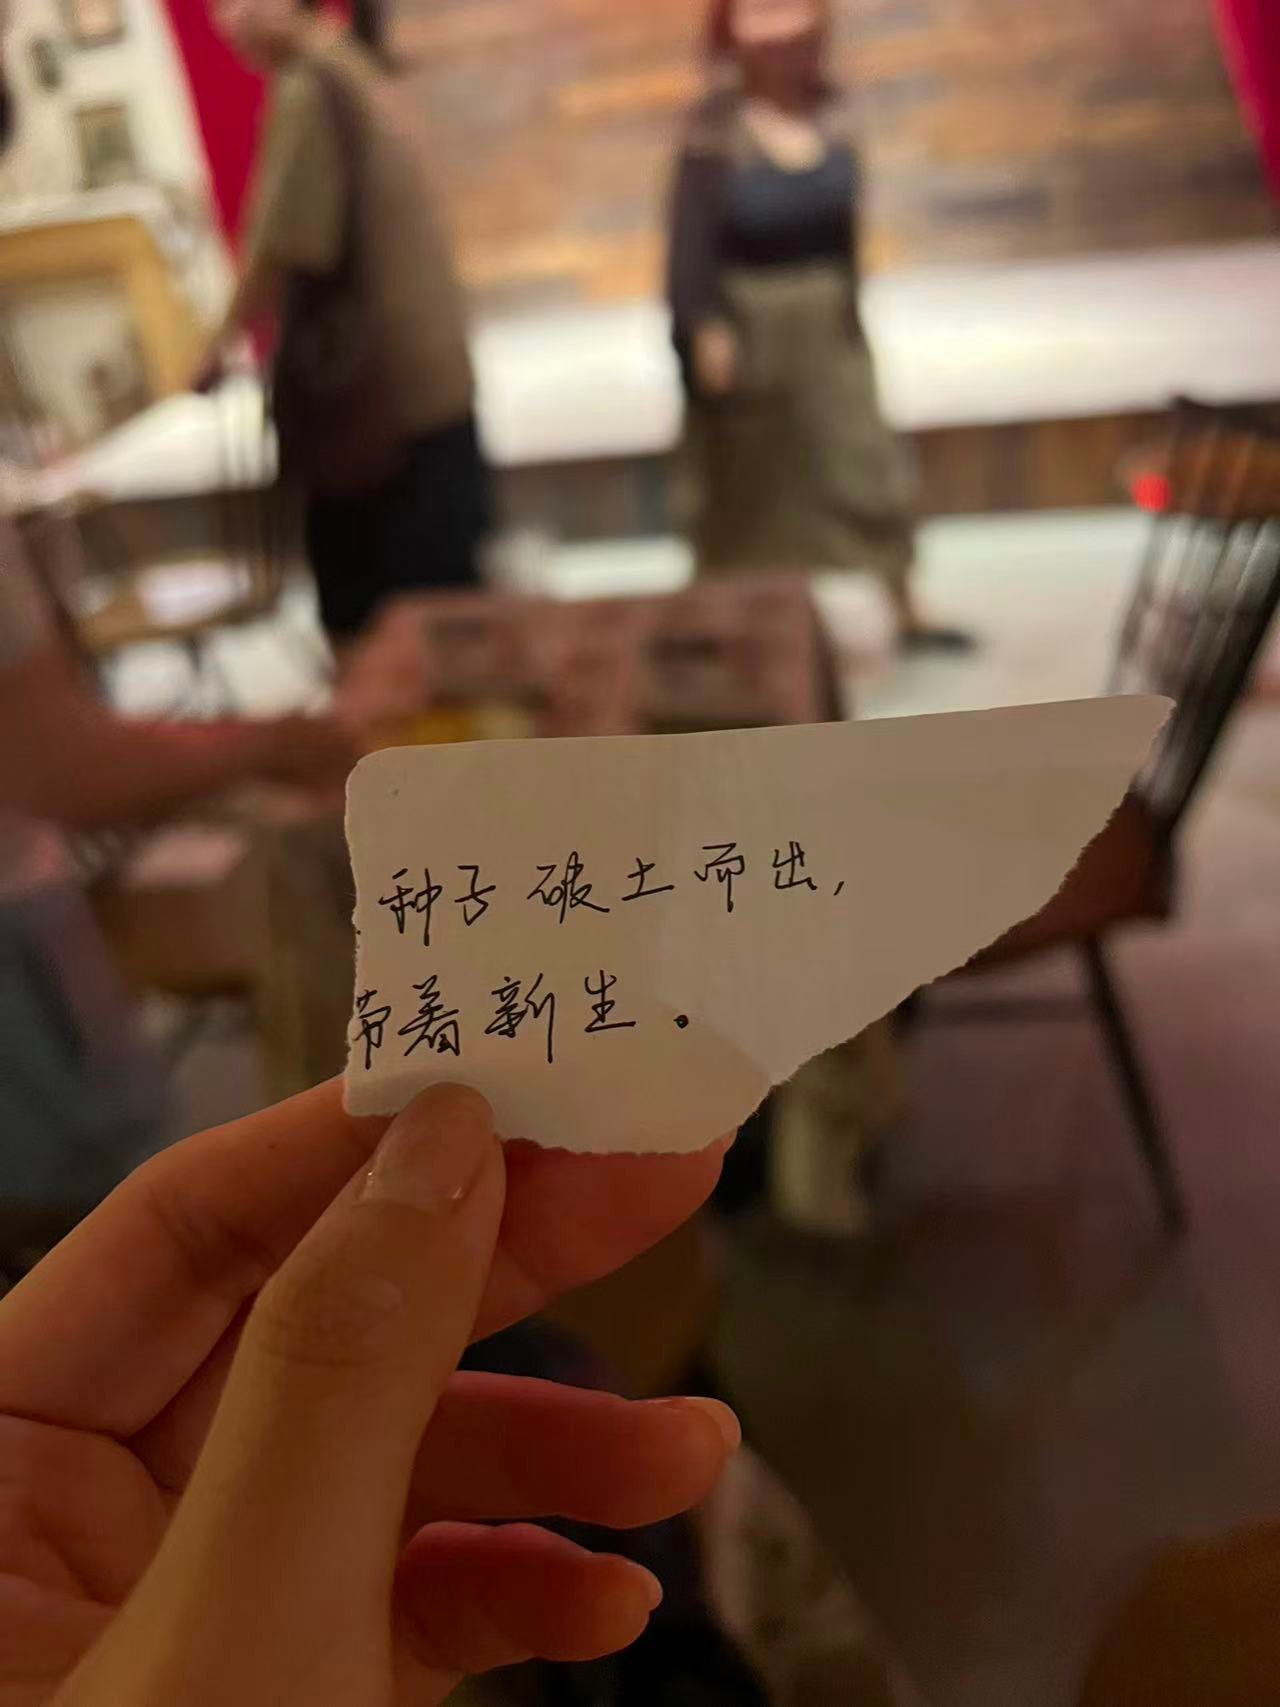 种子破土而出,
带着新生。